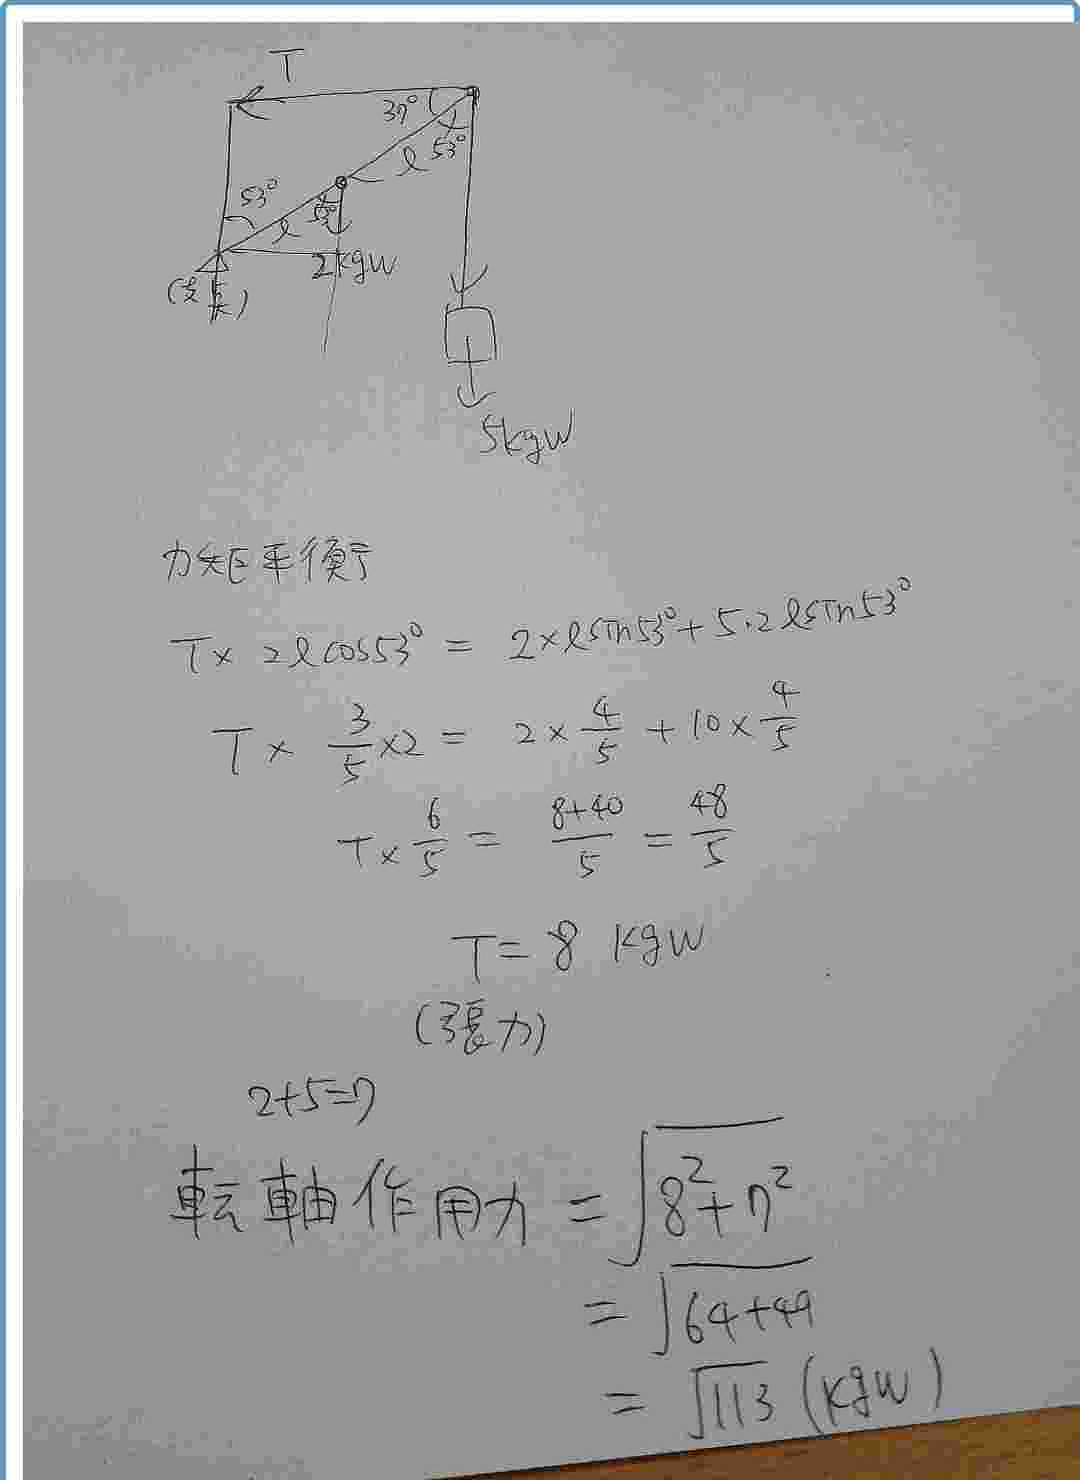 T
37°
53°
l
53°
53°
l
2kgw
(支点)
5kgw
力矩平衡
T× 2lcos53° = 2×lsin53°+5·2lsin53°
T× 3/5 ×2 = 2× 4/5 + 10× 4/5
T× 6/5 = 8+40/5 = 48/5
T= 8 kgw
(張力)
2+5=7
転軸作用力 = √8²+7²
= √64+49
= √113 (kgw)